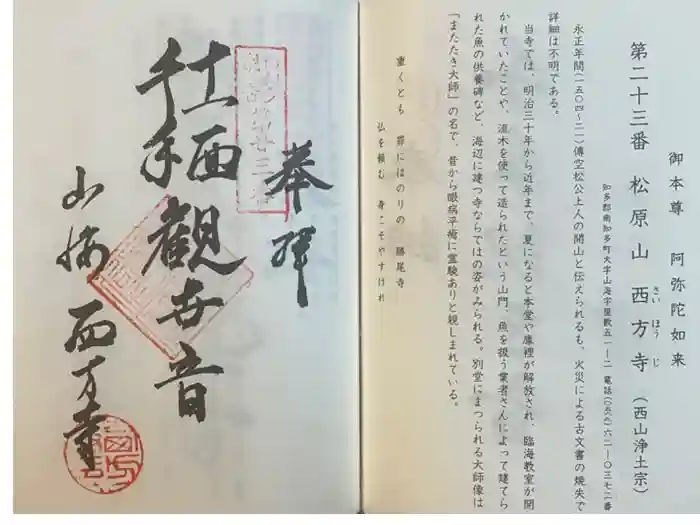 御本尊 阿弥陀如来
第二十三番 松原山 西方寺 (西山浄土宗)
さい ほう じ
知多郡南知多町大字山海字屋敷五一ー二 電話(〇五六九)六二ー〇三七二番
永正年間(一五〇四〜二一)傳空松公上人の開山と伝えられるも、火災による古文書の焼失で
詳細は不明である。
当寺では、明治三十年から近年まで、夏になると本堂や庫裡が解放され、臨海教室が開
かれていたことや、流木を使って造られたという山門、魚を扱う業者さんによって建てら
れた魚の供養碑など、海辺に建つ寺ならではの姿がみられる。別堂にまつられる大師像は
「またたき大師」の名で、昔から眼病平癒に霊験ありと親しまれている。
重くとも 罪にはのりの 勝尾寺
仏を頼む 身こそやすけれ
奉拝
十一面
千手
観世音
山海 西方寺